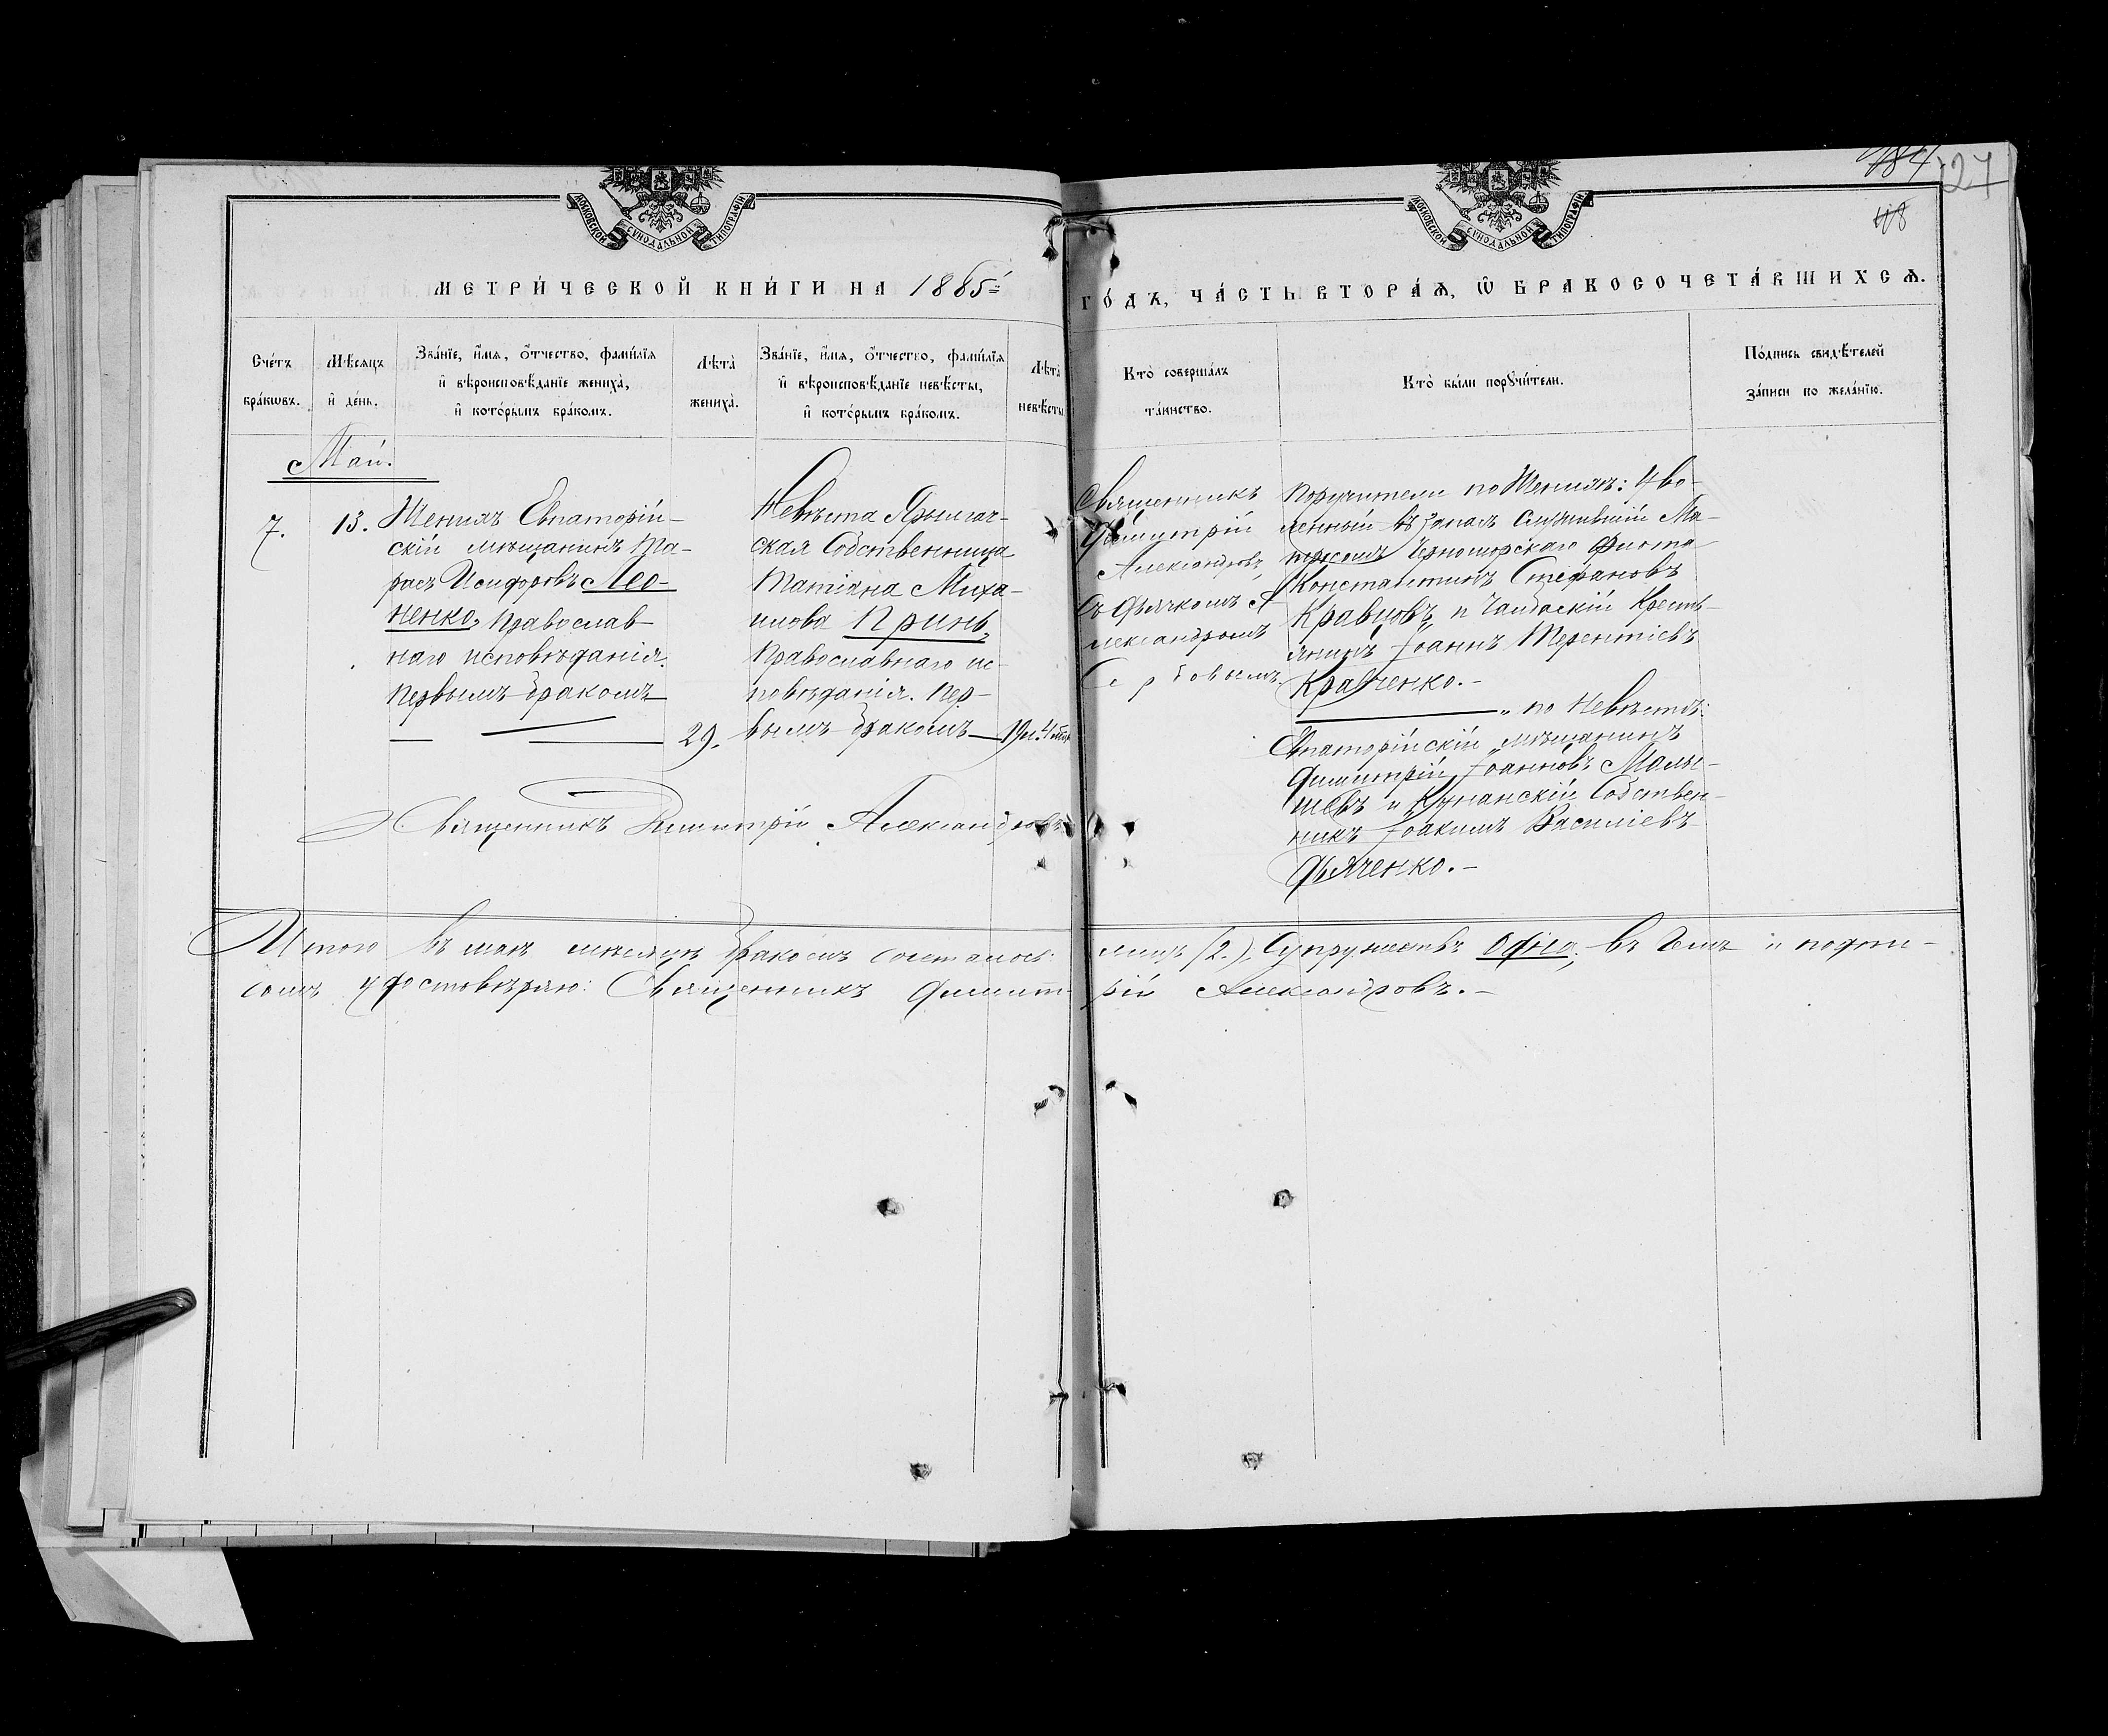 184 127
118
МОСКОВСКОЙ СѴНОДАЛЬНОЙ ТИПОГРАФІИ
МОСКОВСКОЙ СѴНОДАЛЬНОЙ ТИПОГРАФІИ
МЕТРИ́ЧЕСКОЙ КНИ́ГИ НА 1885й
ГО́ДЪ, ЧА́СТЬ ВТОРА́Ѧ, Ѿ БРАКОСОЧЕТА́ВШИХСѦ.
Сче́тъ
бра́кѡвъ.
Мѣ́сяцъ
и҆ де́нь.
Зва́нїе, и҆́мѧ, ѻ҆́тчество, фами́лїѧ
и҆ вѣроисповѣ́данїе жениха̀,
и҆ кото́рымъ бра́комъ.
Лѣ́та̀
жениха̀.
Зва́нїе, и҆́мѧ, ѻ҆́тчество, фами́лїѧ
и҆ вѣроисповѣ́данїе невѣ́сты,
и҆ кото́рымъ бра́комъ.
Лѣ́та̀
невѣ́сты
Кто̀ соверша́лъ
та́инство.
Кто̀ бы́ли порꙋчи́тели.
По́дпись свидѣ́телей
за́писи по жела́нїю.
Май.
7.
13.
Женихъ Евпаторій-
скій мѣщанинъ Та-
расъ Исидоровъ Лео-
ненко, Православ-
наго исповѣданія.
Первымъ бракомъ
29.
Невѣста Ярылгач-
ская Собственница
Татіана Миха-
илова Принь,
Православнаго ис-
повѣданія. Пер-
вымъ бракомъ
19л. 4
Священникъ
Димитрій
Александровъ,
съ дьячкомъ А-
лександромъ
Сербовымъ.
Поручители по Женихѣ: Уво-
ленный въ запасъ служившій Ма-
тросомъ Черноморскаго флота
Константинъ Стефановъ
Кравцовъ и Крестъ-
янинъ Іоаннъ Терентіевъ
Кравченко.-
" по Невѣстѣ:
Евпаторійскій мѣщанинъ
Димитрій Іоанновъ Малы-
шевъ и Кунанскій Собствен-
никъ Іоакимъ Василіевъ
Дьяченко.-
Священникъ Димитрій Александровъ
Итого въ маѣ мѣсяцѣ бракомъ состалось: лицъ (2.), Супружествъ Одно, въ чемъ и подпи-
сомъ удостовѣряю: Священникъ Димитрій Александровъ.-